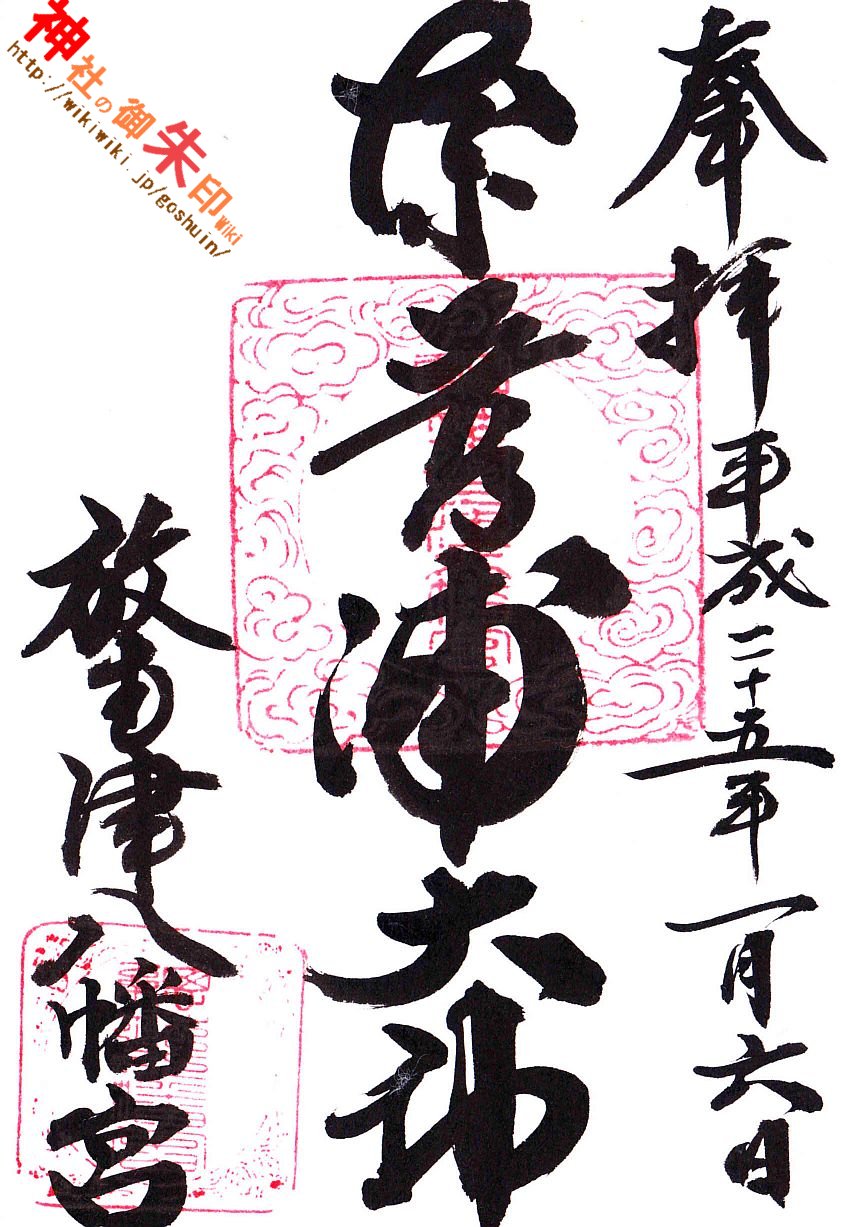 奉拝 平成二十五年一月六日
奈呉浦大神
放生津八幡宮
神社の御朱印Wiki
http://wikiwiki.jp/goshuin/